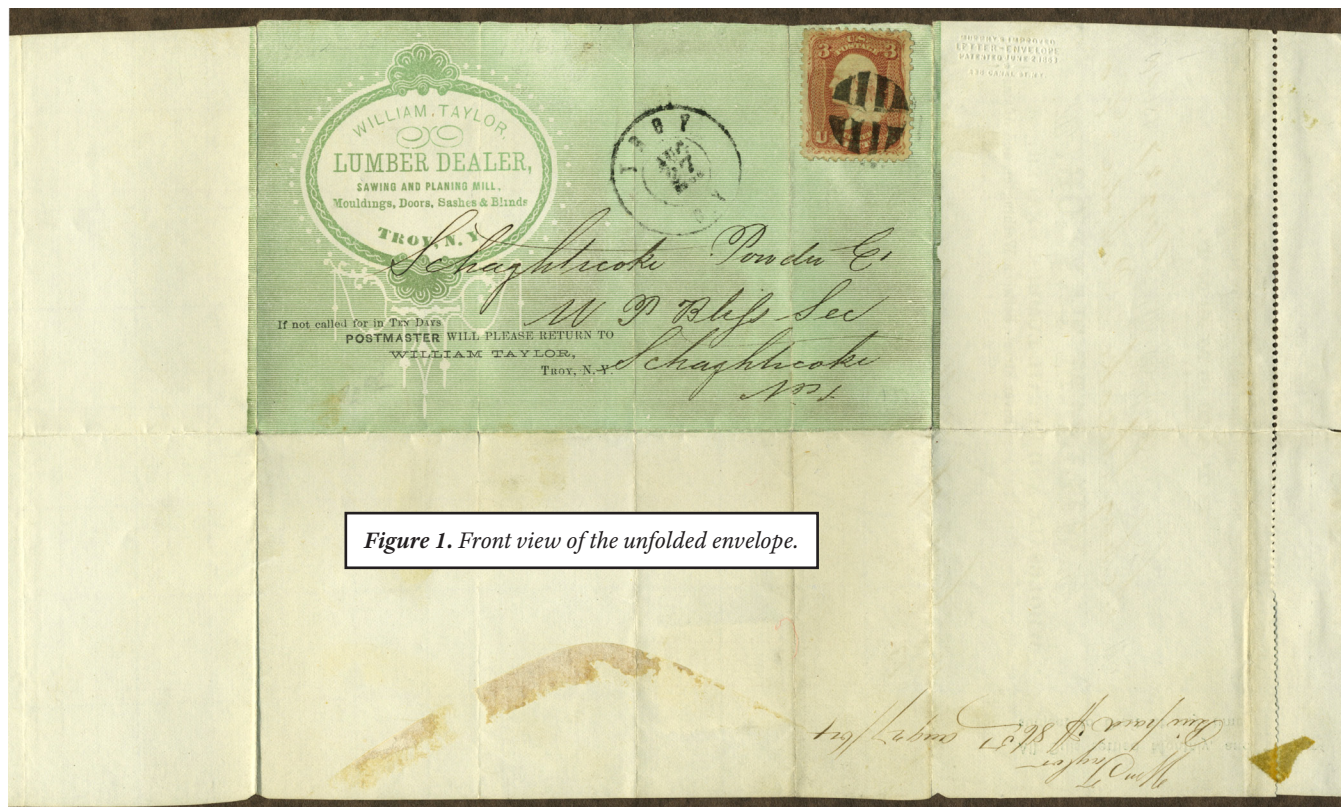 WILLIAM. TAYLOR,
LUMBER DEALER,
SAWING AND PLANING MILL,
Mouldings, Doors, Sashes & Blinds
TROY, N.Y.
TROY
AUG
27
N Y
U.S.
POSTAGE
3 3
U
LETTER-ENVELOPE
PATENTED JUNE 2 1863
CANAL ST. N.Y.
Schaghticoke Powder Co
W P Bliss Sec
Schaghticoke
N.Y.
If not called for in TEN DAYS
POSTMASTER WILL PLEASE RETURN TO
WILLIAM TAYLOR,
TROY, N.Y.
Figure 1. Front view of the unfolded envelope.
Wm Taylor
Aug 27/64